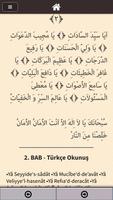 ﴿٢﴾
أَيَا سَيِّدَ السَّادَاتِ ۞ يَا مُجِيبَ
الدَّعَوَاتِ ۞ يَا وَلِيَّ الْحَسَنَاتِ ۞ يَا رَفِيعَ
الدَّرَجَاتِ ۞ يَا عَظِيمَ الْبَرَكَاتِ ۞ يَا
غَافِرَ الْخَطِيئَاتِ ۞ يَا دَافِعَ الْبَلِيَّاتِ ۞ يَا
سَامِعَ الْأَصْوَاتِ ۞ يَا مُعْطِيَ
الْمَسْؤُولَاتِ ۞ يَا عَالِمَ السِّرِّ
سُبْحَانَكَ يَا لَا إِلٰهَ إِلَّا أَنْتَ الْأَمَانُ الْأَمَانُ
خَلِّصْنَا مِنَ النَّارِ
2. BAB - Türkçe Okunuş
•Yâ Seyyide's-sâdât •Yâ Mucîbe'd-de'avât •Yâ
Veliyye'l-hasenât •Yâ Refia'd-deracât •Yâ